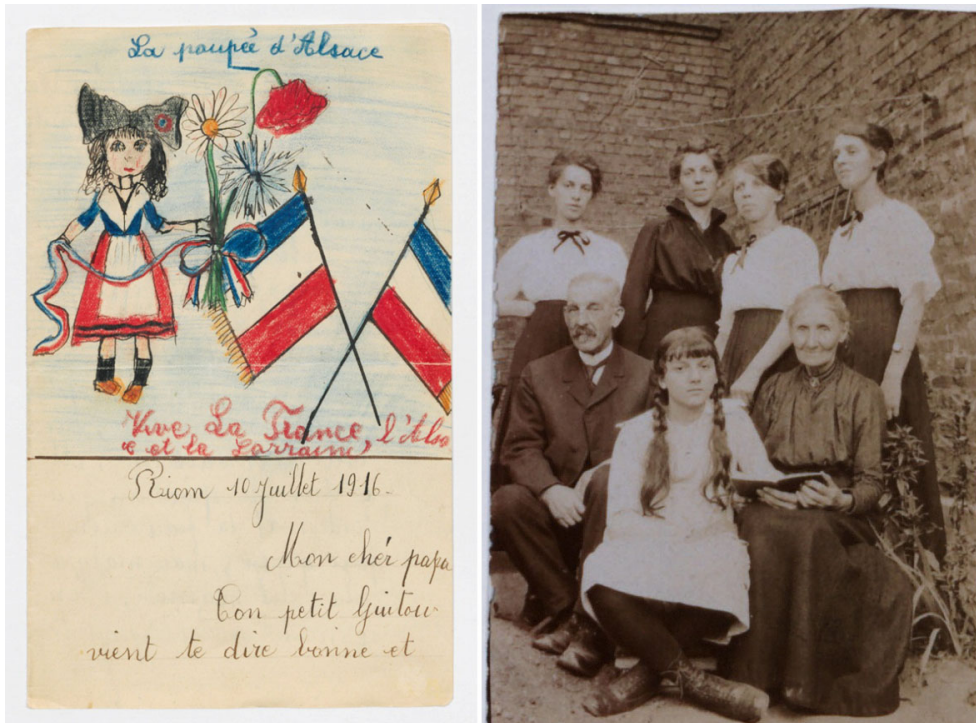 La poupée d'Alsace
Vive La France, l'Alsa
c et la Lorraine
Riom 10 Juillet 1916.
Mon chér papa
Ton petit Guitou
vient te dire bonne et